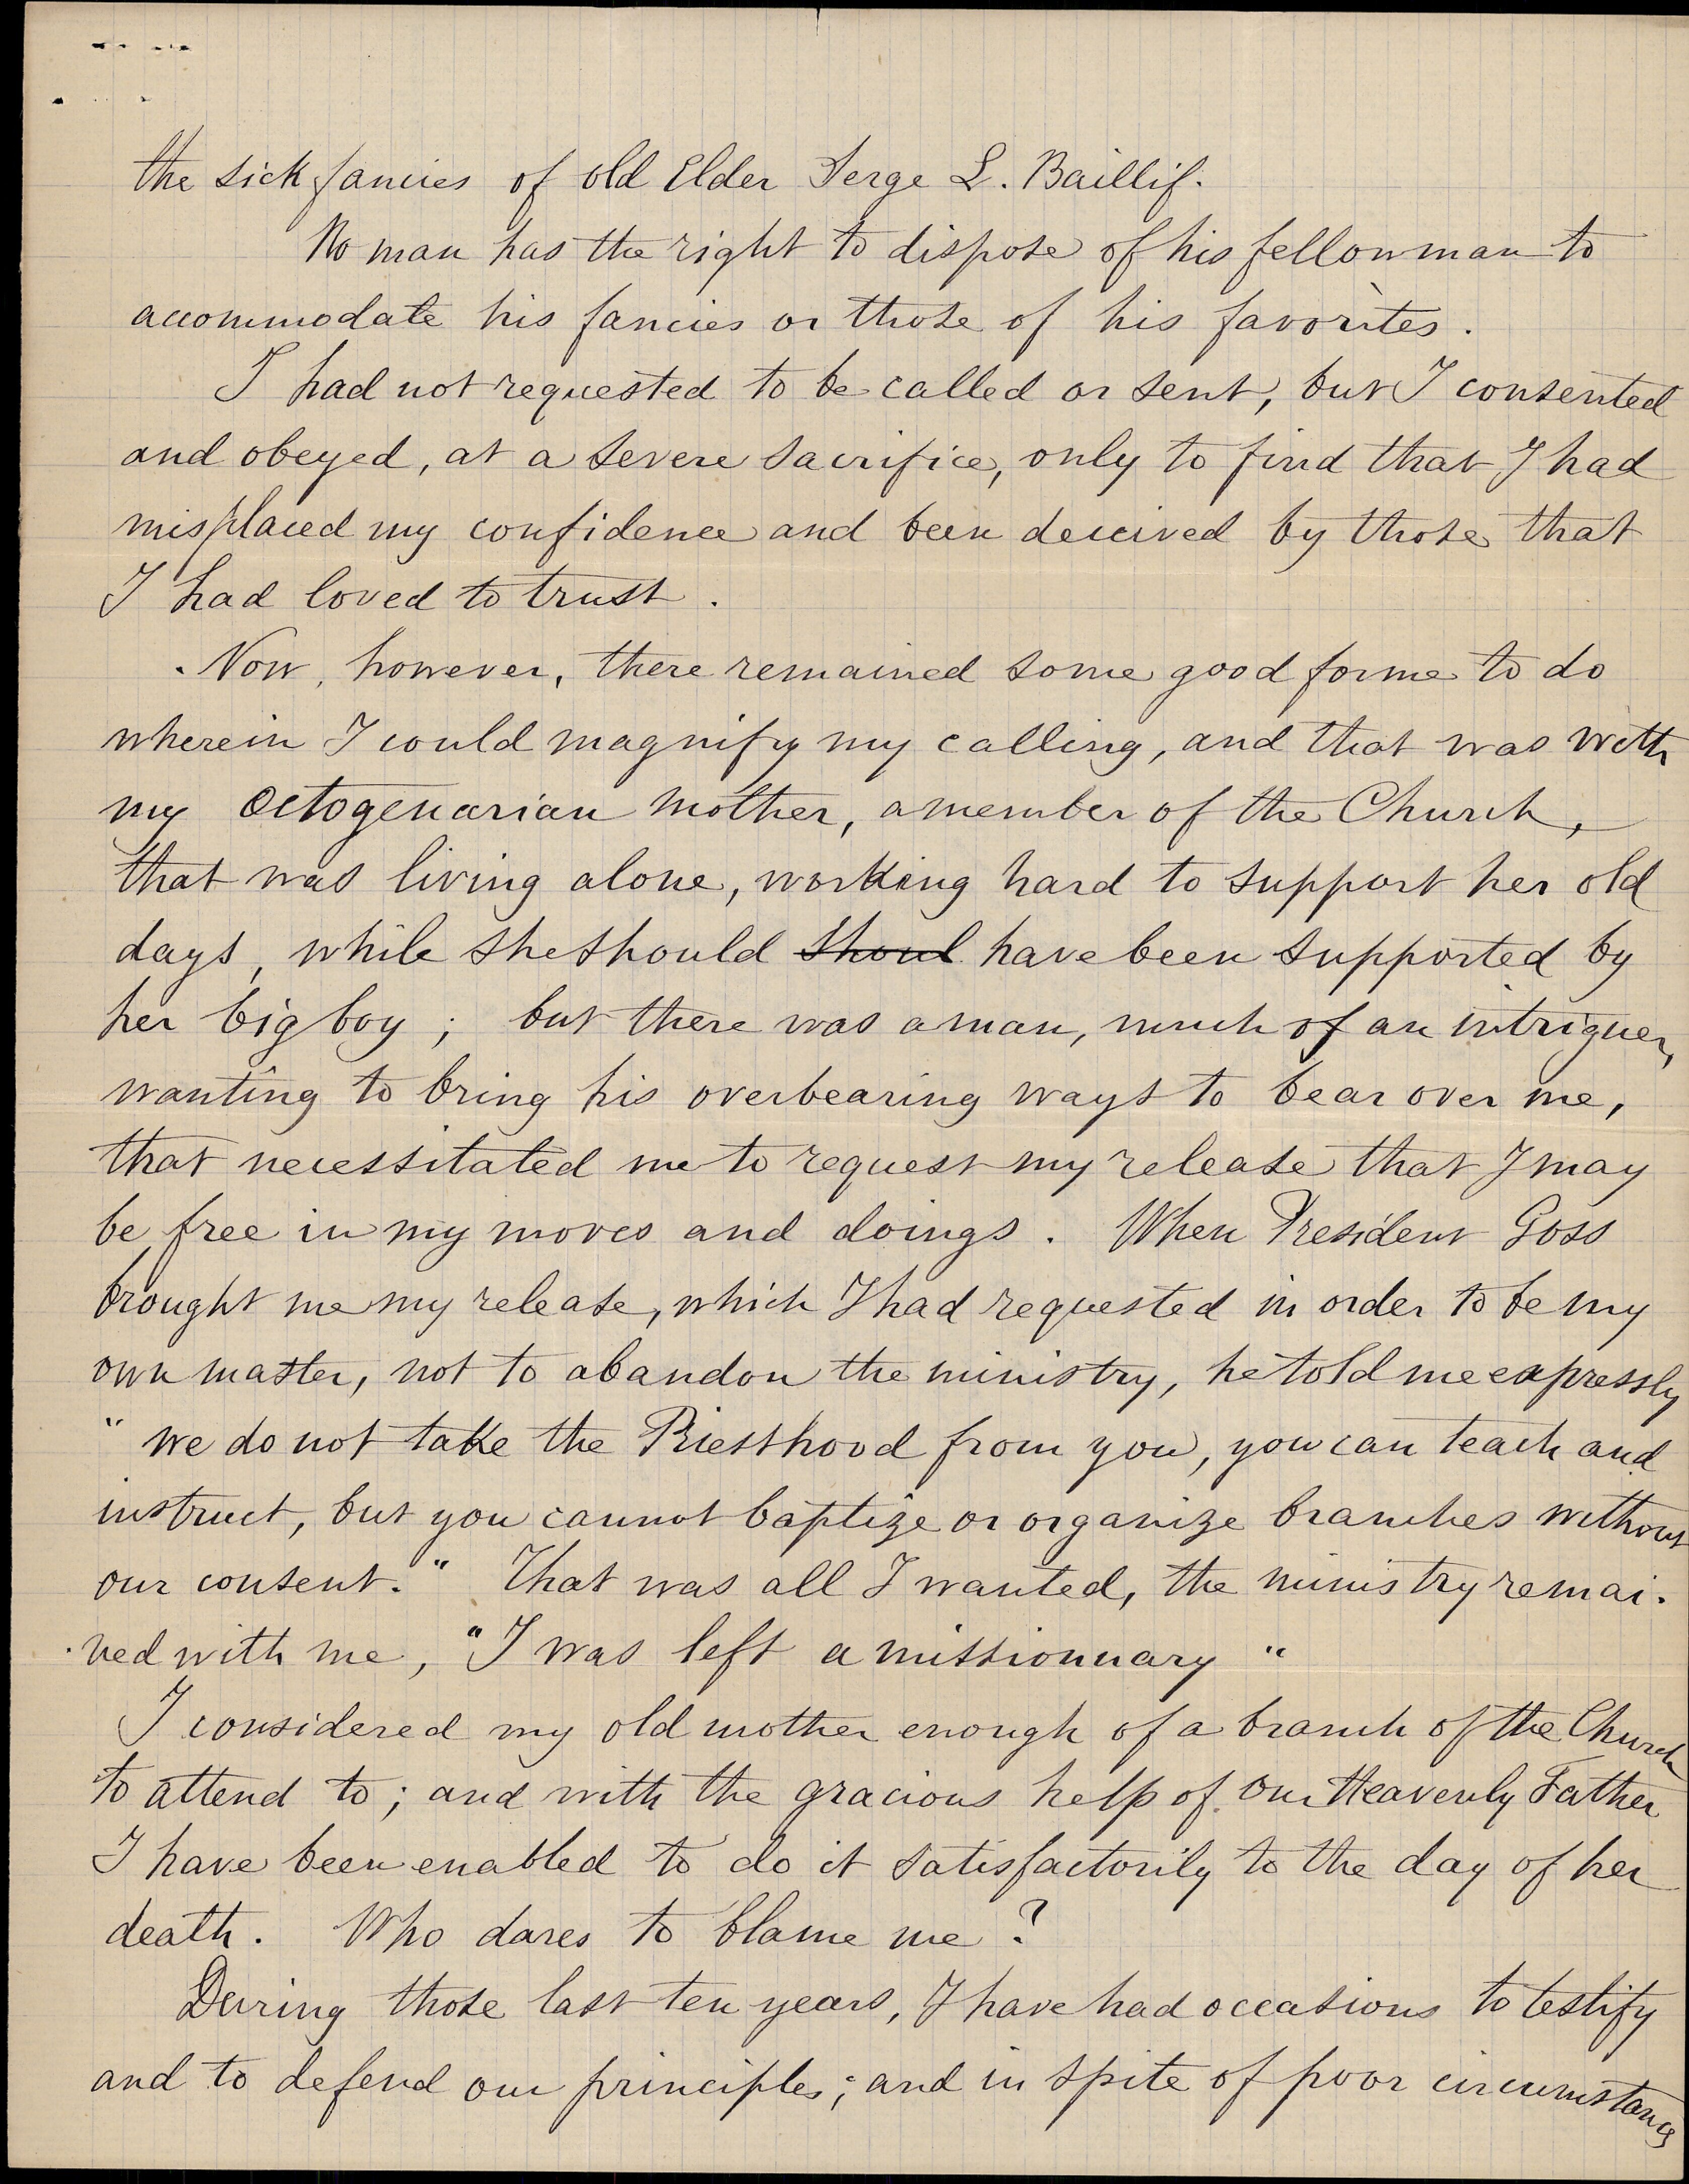 the sick fancies of old Elder Serge L. Baillif.
No man has the right to dispose of his fellowman to
accommodate his fancies or those of his favorites.
I had not requested to be called or sent, but I consented
and obeyed, at a severe sacrifice, only to find that I had
misplaced my confidence and been deceived by those that
I had loved to trust.
Now, however, there remained some good for me to do
wherein I could magnify my calling, and that was with
my octogenarian mother, a member of the Church,
that was living alone, working hard to support her old
days, while she should shoul have been supported by
her big boy; but there was a man, much of an intriguer,
wanting to bring his overbearing ways to bear over me,
that necessitated me to request my release that I may
be free in my moves and doings. When President Goss
brought me my release, which I had requested in order to be my
own master, not to abandon the ministry, he told me expressly
"we do not take the Priesthood from you, you can teach and
instruct, but you cannot baptize or organize branches without
our consent." That was all I wanted, the ministry remai-
ned with me, "I was left a missionnary"
I considered my old mother enough of a branch of the Church
to attend to; and with the gracious help of our Heavenly Father
I have been enabled to do it satisfactorily to the day of her
death. Who dares to blame me?
During those last ten years, I have had occasions to testify
and to defend our principles; and in spite of poor circumstances